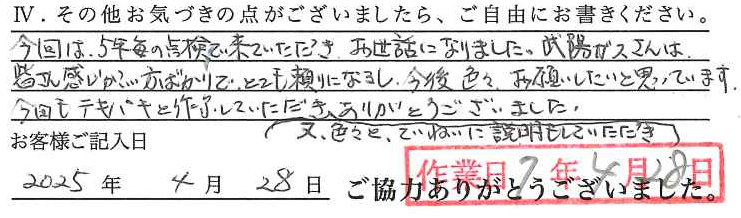 Ⅳ．その他お気づきの点がございましたら、ご自由にお書きください。
今回は、5年毎の点検で来ていただき、お世話になりました。武陽ガスさんは、
皆さん感じがいい方ばかりで、とても頼りになるし、今後色々、お願いしたいと思っています。
今回もテキパキと作業していただき、ありがとうございました。
又、色々と、ていねいに説明もしていただき
お客様ご記入日
2025 年 4 月 28 日 ご協力ありがとうございました。
作業日 7 年 4 月 28 日